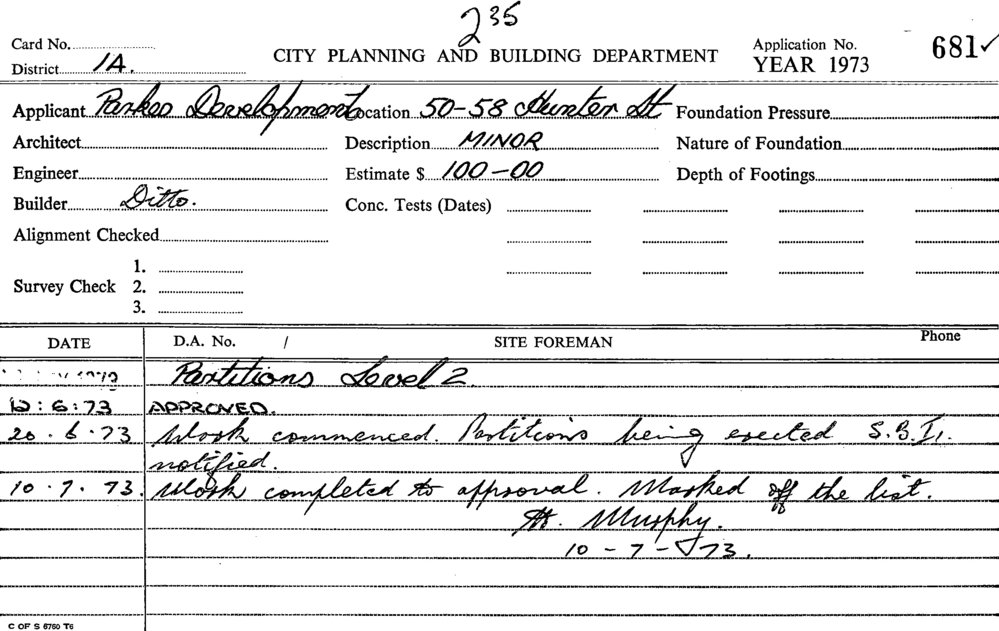 235
Card No.
CITY PLANNING AND BUILDING DEPARTMENT
Application No. 681✓
District 1A.
YEAR 1973
Applicant Parkes Development Location 50-58 Hunter St Foundation Pressure
Architect Description MINOR Nature of Foundation
Engineer Estimate $ 100-00 Depth of Footings
Builder Ditto. Conc. Tests (Dates)
Alignment Checked
1.
Survey Check 2.
3.
DATE D.A. No. / SITE FOREMAN Phone
1973 Partitions Level 2
6:73 APPROVED.
20.6.73 Work commenced. Partitions being erected S.B.I.
notified.
10.7.73. Work completed to approval. Marked off the list.
Murphy.
10-7-73.
C OF S 6760 T6